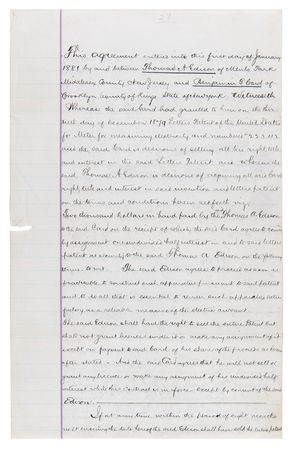 This agreement entered into this first day of January
1881 by and between Thomas A. Edison of Menlo Park
Middlesex County New Jersey and Benjamin F. Card of
Brooklyn County of Kings State of New York Witnesseth
Whereas the said Card had granted to him on the
day of December 1879 Letters Patent of the United States
for Meter for measuring electricity and numbered
and the said Card is desirous of selling all his right title
and interest in the said Letters Patent and whereas the
said Thomas A Edison is desirous of acquiring all said
right title and interest in said invention and letters patent
on the terms and conditions herein
thousand dollars in hand paid by the Thomas A Edison
to the said Card on the receipt of which the said Card agrees to
by assignment one undivided half interest in and to said letters
patent to the said Thomas A Edison on the following
terms to wit. The said Edison agrees to proceed as soon as
practicable to construct such apparatus to said patent
and to do all that is essential to render such apparatus satis
factory as a reliable measure of the electric current.
The said Edison shall have the right to sell the entire Patent but
shall not grant licenses under it or make any assignment of it
except on payment to said Card of his share of the proceeds as herein
after stated - And the said Card agrees that he will not sell or
grant any license or make any assignment of his undivided half
interest while this contract is in force except by consent of the said
Edison.
If at any time within the period of eight months
next ensuing the date hereof the said Edison shall have sold the entire patent